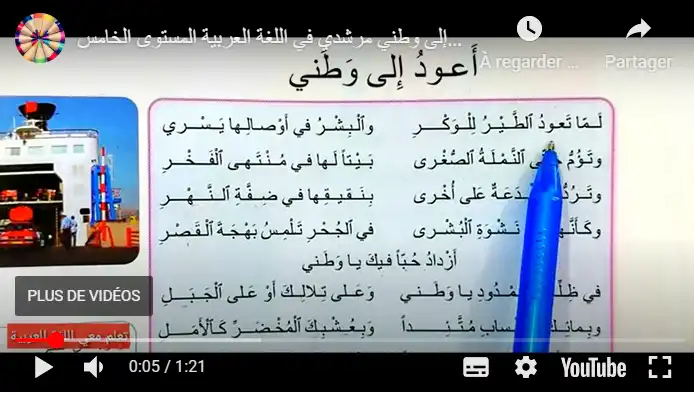 إلى وطني مرشدي في اللغة العربية المستوى الخامس...
À regarder ...
Partager
أَعودُ إِلى وَطَني
لَـمّا تَعودُ ٱلطَّيْرُ لِلْوَكْـــرِ وٱلْبِشْرُ في أَوْصالِها يَسْــري
وتَؤُمُّ ٱلنَّمْلَةُ ٱلصُّغْرى بَيْتاً لَها في مُنْتَهى ٱلْفَخْـرِ
وتَـرُدُّ عَلى أُخْرى بِنَقيقِها في ضِفَّةِ ٱلنَّـــهْرِ
وكَأَنَّهـ نَشْوَةِ ٱلْبُشْرى في ٱلْجُحْرِ تَلْمِسُ بَهْجَةَ ٱلْقَصْرِ
أَزْدادُ حُبّاً فيكَ يا وَطَني
في ظِلِّـ ـمْدُودِ يا وَطَني وَعَلى تِلالِكَ أَوْ عَلى ٱلْجَبَــلِ
وبِمائِكَ ـسابِ مُتَّئِـــداً وَبِعُشْبِكَ ٱلْمُخْضَرِّ كَٱلأَمَــلِ
PLUS DE VIDÉOS
تعلم معي اللغة العربية
0:05 / 1:21
YouTube